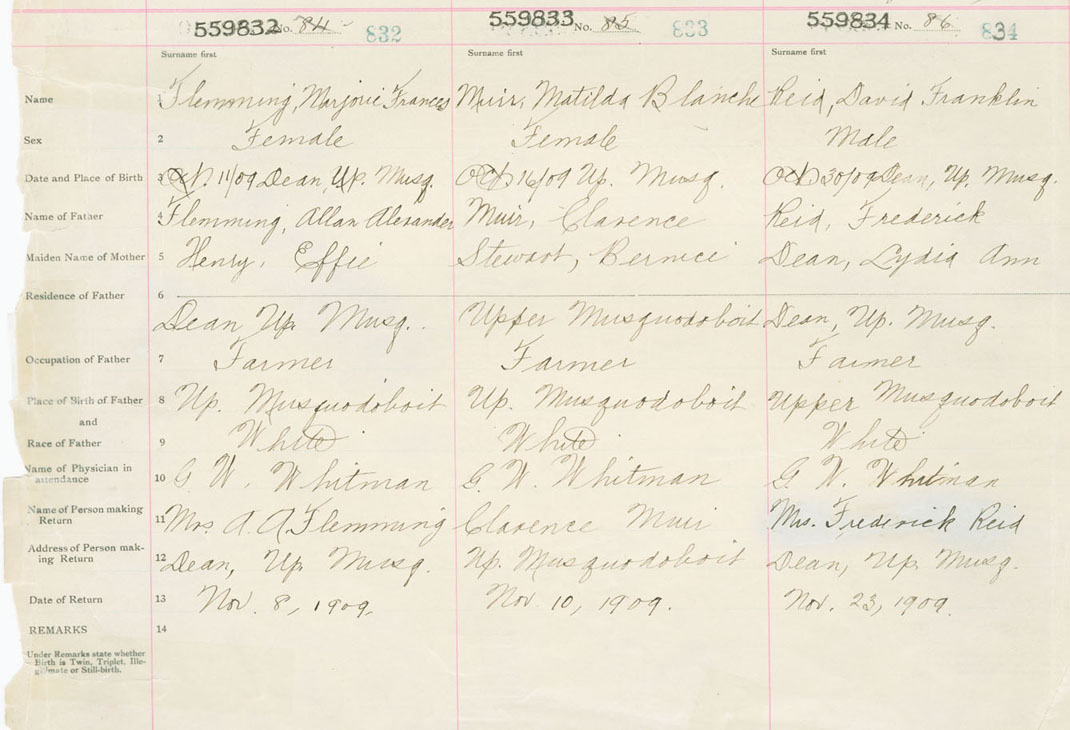 559832 No. 84 832 559833 No. 85 833 559834 No. 86 834
Surname first Surname first Surname first
Name 1 Flemming, Marjorie Frances Muir, Matilda Blanche Reid, David Franklin
Sex 2 Female Female Male
Date and Place of Birth 3 Oct. 11/09 Dean, Up. Musq. Oct. 16/09 Up. Musq. Oct. 30/09 Dean, Up. Musq.
Name of Father 4 Flemming, Allan Alexander Muir, Clarence Reid, Frederick
Maiden Name of Mother 5 Henry, Effie Stewart, Bernice Dean, Lydia Ann
Residence of Father 6
Dean Up. Musq. Upper Musquodoboit Dean, Up. Musq.
Occupation of Father 7 Farmer Farmer Farmer
Place of Birth of Father 8 Up. Musquodoboit Up. Musquodoboit Upper Musquodoboit
and
Race of Father 9 White White White
Name of Physician in
attendance 10 G. W. Whitman G. W. Whitman G. W. Whitman
Name of Person making
Return 11 Mrs. A. A. Flemming Clarence Muir Mrs. Frederick Reid
Address of Person mak-
ing Return 12 Dean, Up. Musq. Up. Musquodoboit Dean, Up. Musq.
Date of Return 13 Nov. 8, 1909. Nov. 10, 1909. Nov. 23, 1909.
REMARKS 14
Under Remarks state whether
Birth is Twin, Triplet, Ille-
gitimate or Still-birth.